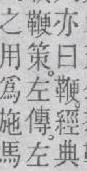 亦曰鞭。經典
之鞭策。左傳。左
用爲施馬